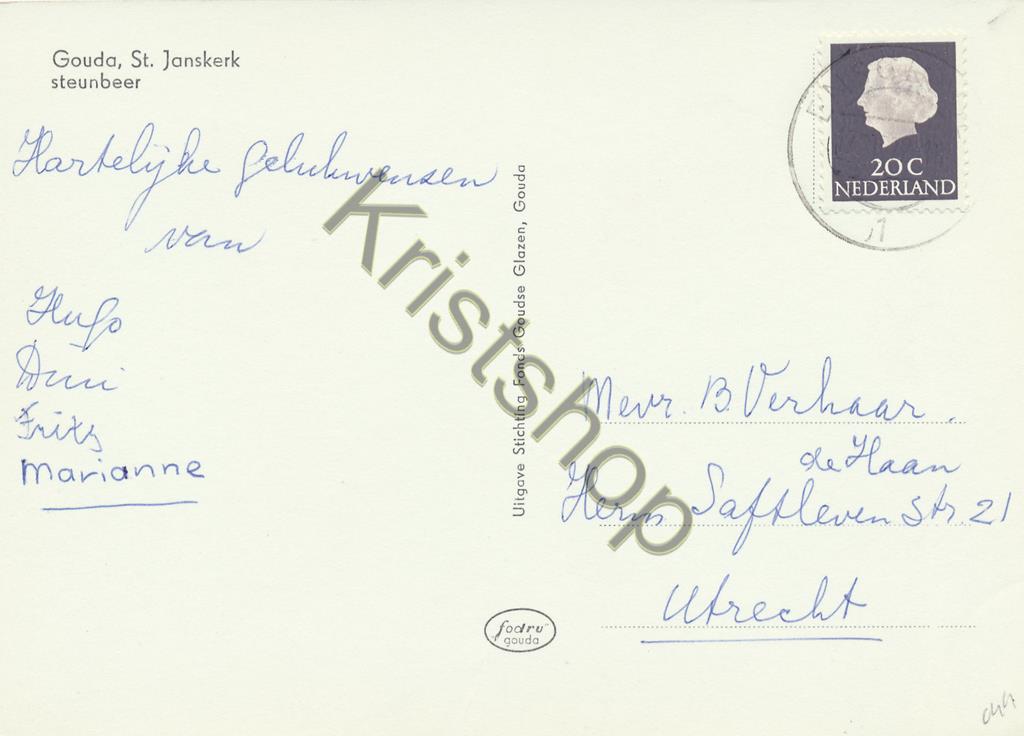 Gouda, St. Janskerk
steunbeer
Hartelijke gelukwensen
van
Hugo
Fritz
Marianne
Uitgave Stichting Fonds Goudse Glazen, Gouda
fodru
gouda
20 C
NEDERLAND
Mevr. B. Verhaar.
de Haan
Herm Saftleven Str. 21
Utrecht
Kristshop